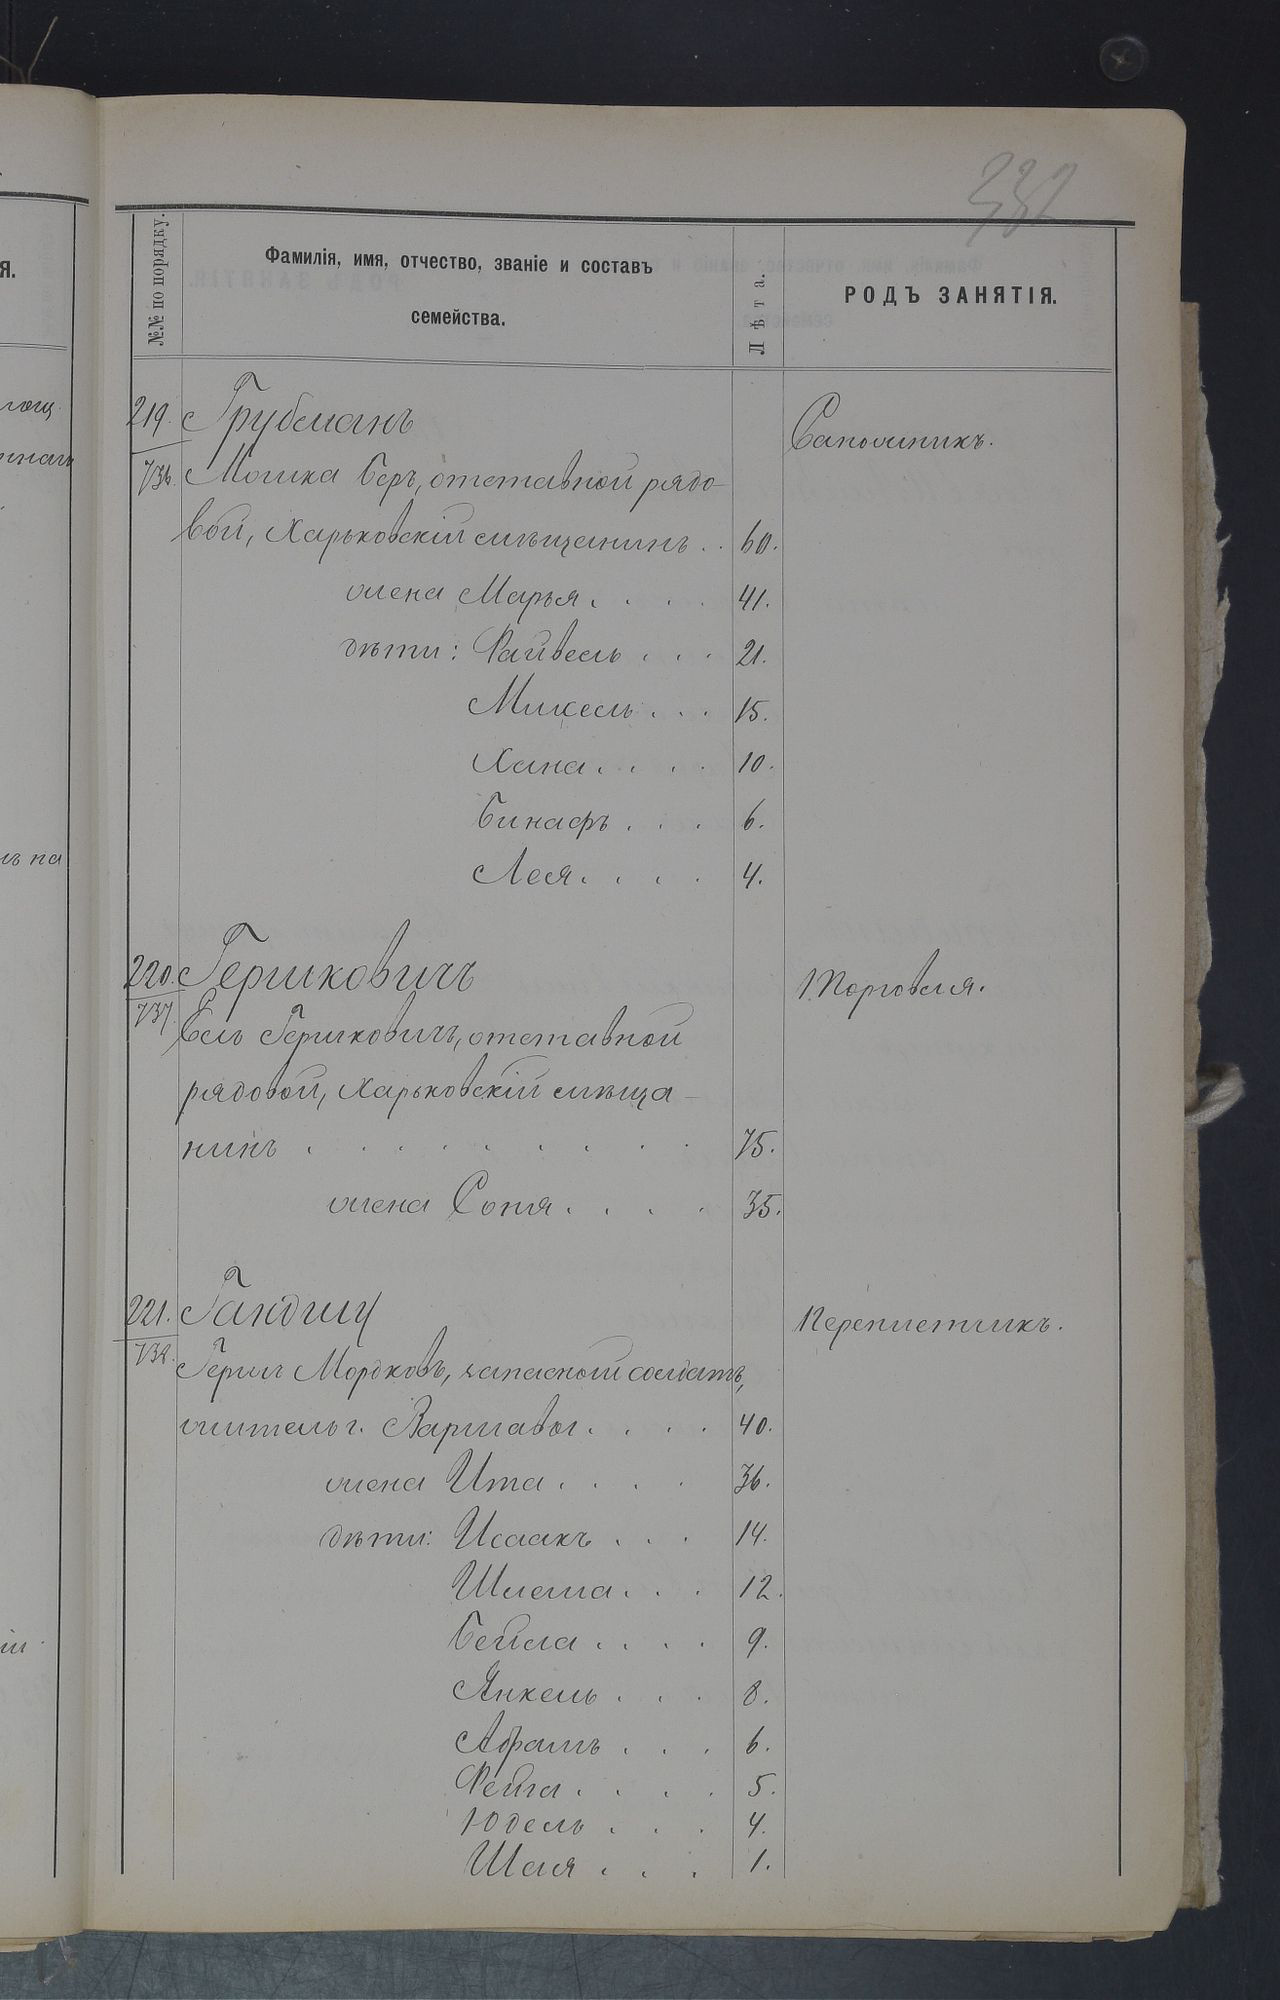 332
№№ по порядку.
Фамилія, имя, отчество, званіе и составъ
семейства.
Лѣта.
РОДЪ ЗАНЯТІЯ.
219. Грубманъ
Сапожникъ.
736. Мошка Беръ, отставной рядо-
вой, Харьковскій мѣщанинъ . . 60.
жена Марья . . . . 41.
дѣти: Файвель . . . 21.
Михель . . . 15.
Хана . . . . 10.
Бинафъ . . . 6.
Лея . . . . 4.
220. Гершковичъ
Торговля.
737. Ель Гершковичъ, отставной
рядовой, Харьковскій мѣща-
нинъ . . . . . . . . 75.
жена Соня . . . . 35.
221. Гандшу
Переплетчикъ.
738. Гершъ Мордковъ, запасной солдатъ,
житель г. Варшавы . . . . 40.
жена Ита . . . . 36.
дѣти: Исаакъ . . . 14.
Шлема . . . 12.
Бейла . . . . 9.
Янкель . . . 8.
Абрамъ . . . 6.
Фейга . . . . 5.
Юдель . . . 4.
Шая . . . 1.